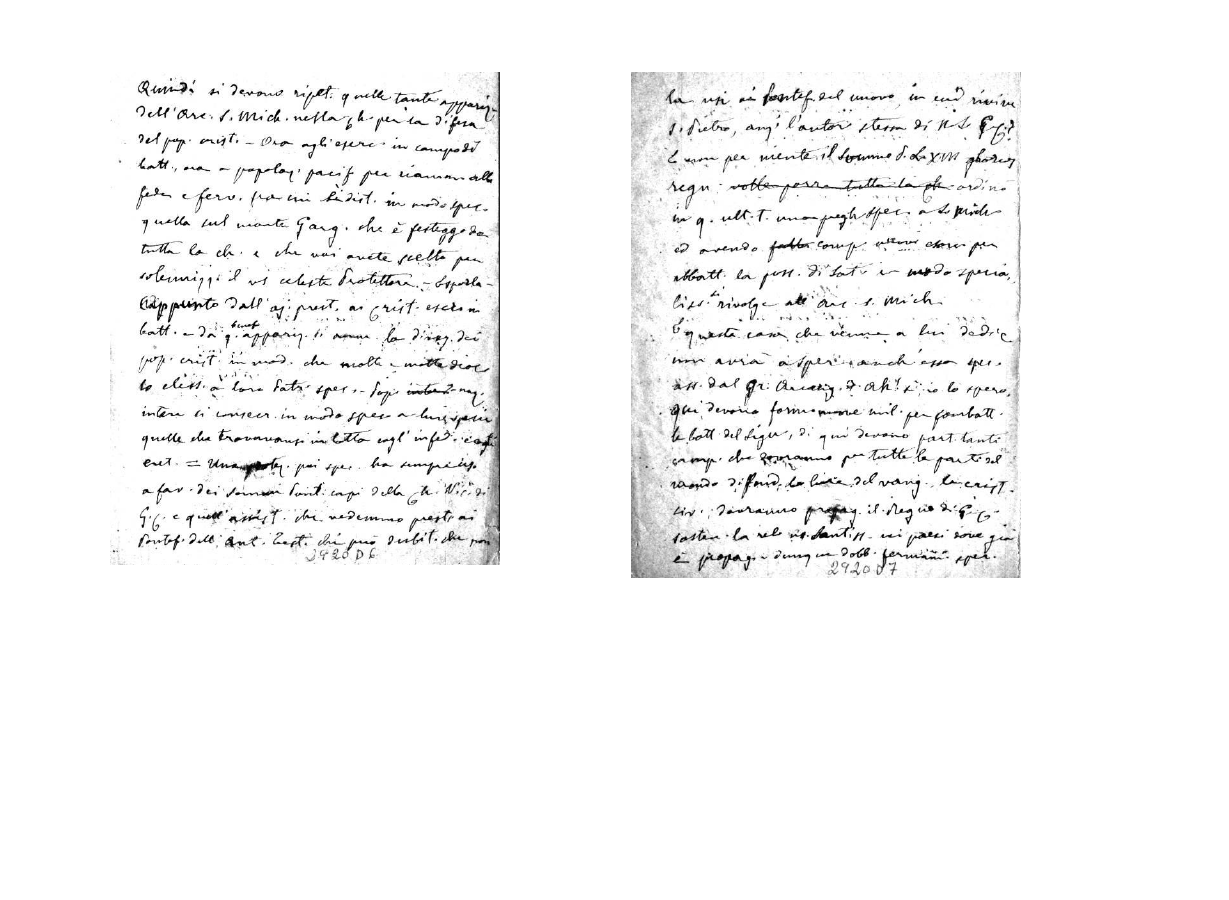 Quindi si devono ripet. quelle tante appariz.
dell'Arc. S. Mich. nella Ch. per la difesa
del pop. crist. - Ora agli eserc. in campo di
batt., ora a popolaz. pacif. per riaman alla
fede e ferv. fra cui si dist. in modo spec.
quella sul monte Garg. che è festeggda
tutta la ch. e che voi avete scelto per
solennizzi il vs celeste Protettore. -
appunto dall' prest. ai crist. eserc. in
batt. e da q. appariz. si
pop. crist. in mod. che molte e molte dioc.
lo eless. a loro Patr. spec. - Pop. naz.
intere si consecr. in modo spec. a lui, spec.
quelle che trovavansi in lotta cogl' infed.
eret. = Una poi spec. ha sempre
a favor dei sommi Pont. capi della Ch. Vic. di
G. C. e quell'assist. che vedemmo prest. ai
Pontef. dell' Ant. Test. chi può dubit. che non
292006
la usi ai Pontef. del nuovo, in cui rivive
S. Pietro, anzi l'autor. stessa di N. S. G. C.?
E non per niente il Sommo P. Le XIII
regn. volle porre tutta la ch. ordinò
in q. ult. t. una pregh. spec. a S. Mich.
ed avendo fatto comp. esorc. per
abbatt. la poss. di Sat. in modo specia.
liss. si rivolge all' Arc. S. Mich.
E questa casa che venne a lui dedic.
non avrà a sper. anch'essa spec.
ass. dal Gr. Arcang.? Ah! sì, io lo spero,
qui devono formare mil. per combatt.
le batt. del Sign., di qui devono part. tanti
camp. che per tutte le parti del
mondo diffond. la luce del vang. la crist.
civ., dovranno propag. il Regno di G. C.
sosten. la rel. ns. Santiss. nei paesi dove già
è propag. dunque dobb. sper.
292007